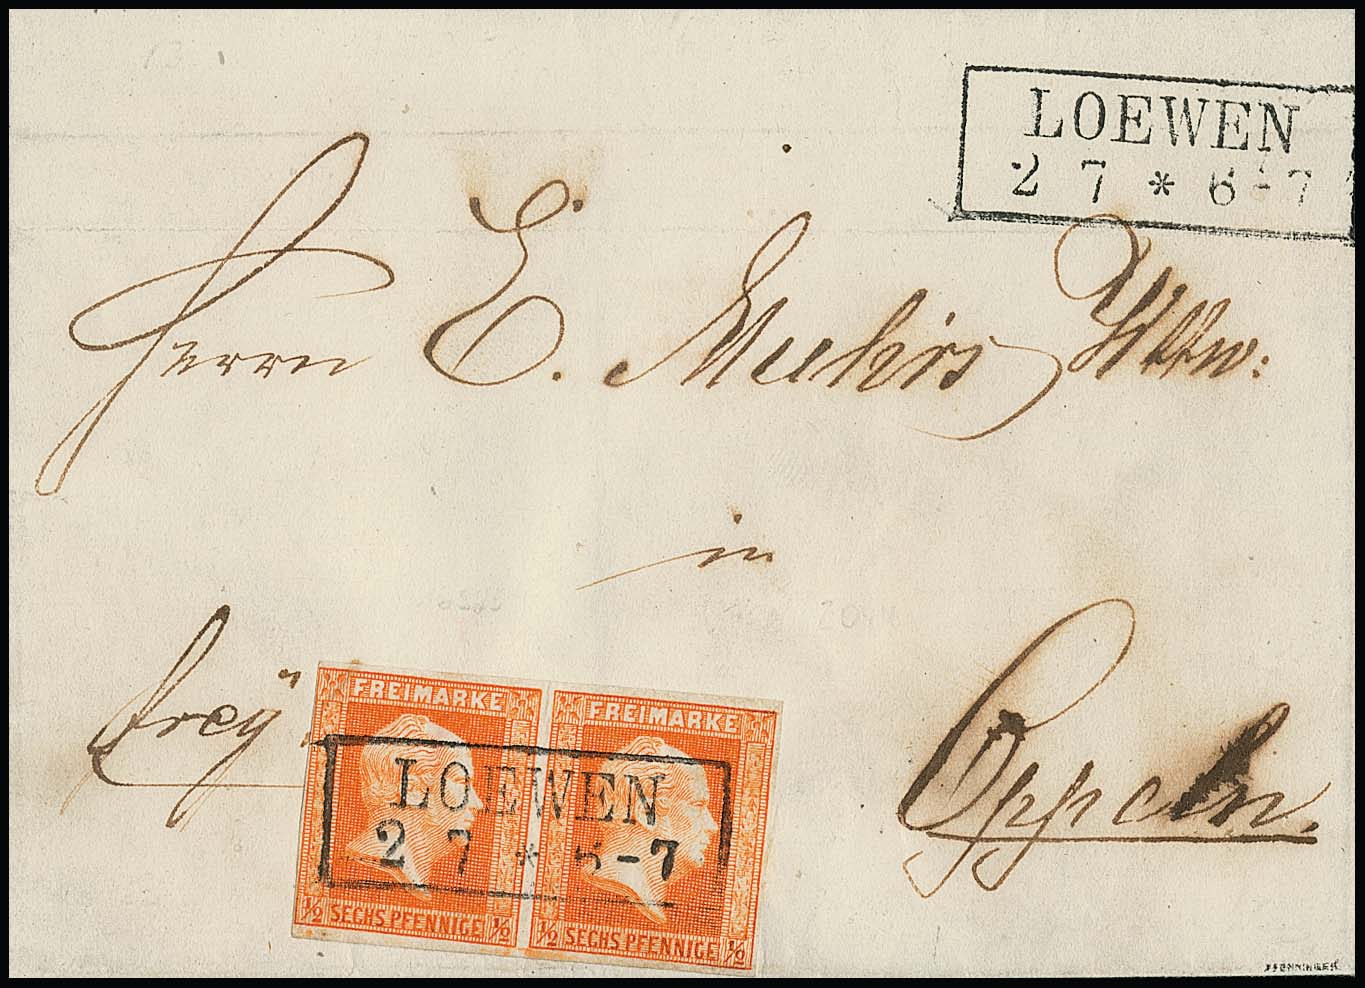 LOEWEN
2 7 * 6-7
Herrn E. Muhrs Wttw:
in
frey
Oppeln.
FREIMARKE FREIMARKE
LOEWEN
2 7 * 6-7
½ SECHS PFENNIGE ½ ½ SECHS PFENNIGE ½
PFENNINGER